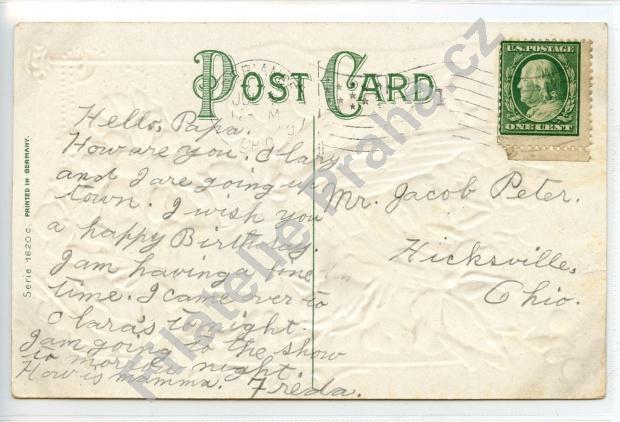 POST CARD
U.S. POSTAGE
ONE CENT
Hello, Papa.
How are you. Clara
and I are going up
town. I wish you
a happy Birthday.
I am having a fine
time. I came over to
Clara's to night.
I am going to the show
to morrow night.
How is mamma. Freda.
Mr. Jacob Peter.
Hicksville,
Ohio.
Serie 1620 C. PRINTED IN GERMANY.
Filatelie Praha.cz